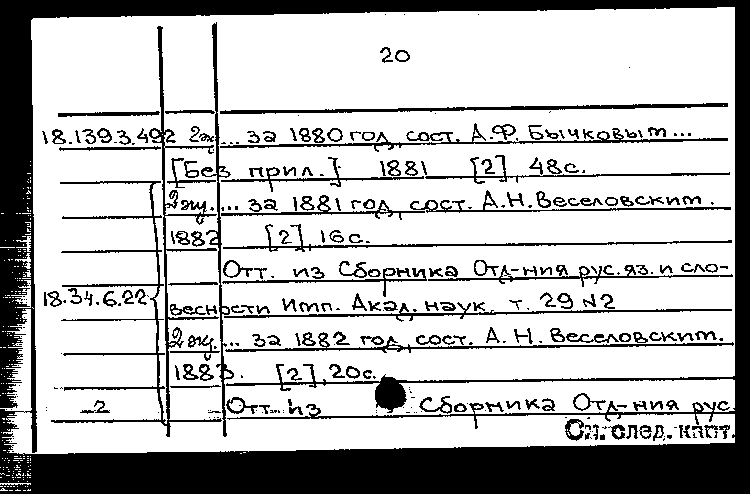 20
18.139.3.492 2 эк. ... за 1880 год, сост. А.Ф. Бычковым...
[Без прил.] 1881 [2], 48 с.
2 эк. ... за 1881 год, сост. А.Н. Веселовским.
1882 [2], 16 с.
Отт. из Сборника Отд-ния рус. яз. и сло-
18.34.6.22 весности Имп. Акад. наук. т. 29 №2
2 эк. ... за 1882 год, сост. А.Н. Веселовским.
1883. [2], 20 с.
-2 Отт. из Сборника Отд-ния рус.
См. след. карт.